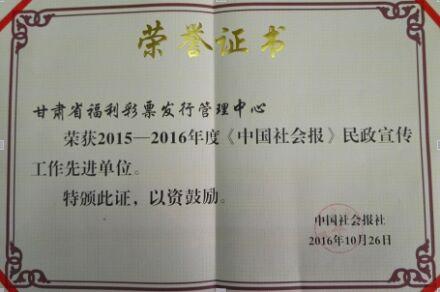 荣誉证书
甘肃省福利彩票发行管理中心
荣获2015—2016年度《中国社会报》民政宣传
工作先进单位。
特颁此证，以资鼓励。
中国社会报社
2016年10月26日